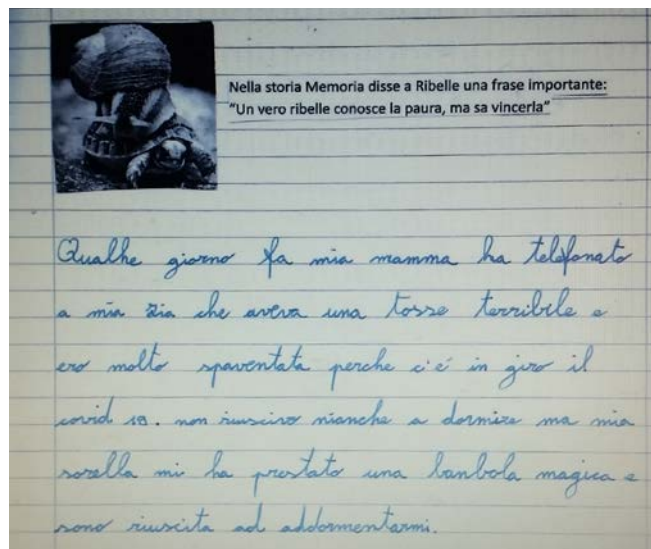 Nella storia Memoria disse a Ribelle una frase importante:
"Un vero ribelle conosce la paura, ma sa vincerla"
Qualhe giorno fa mia mamma ha telefonato
a mia zia che aveva una tosse terribile e
ero molto spaventata perche c'é in giro il
covid 19. non riuscivo nianche a dormire ma mia
sorella mi ha prestato una banbola magica e
sono riuscita ad addormentarmi.